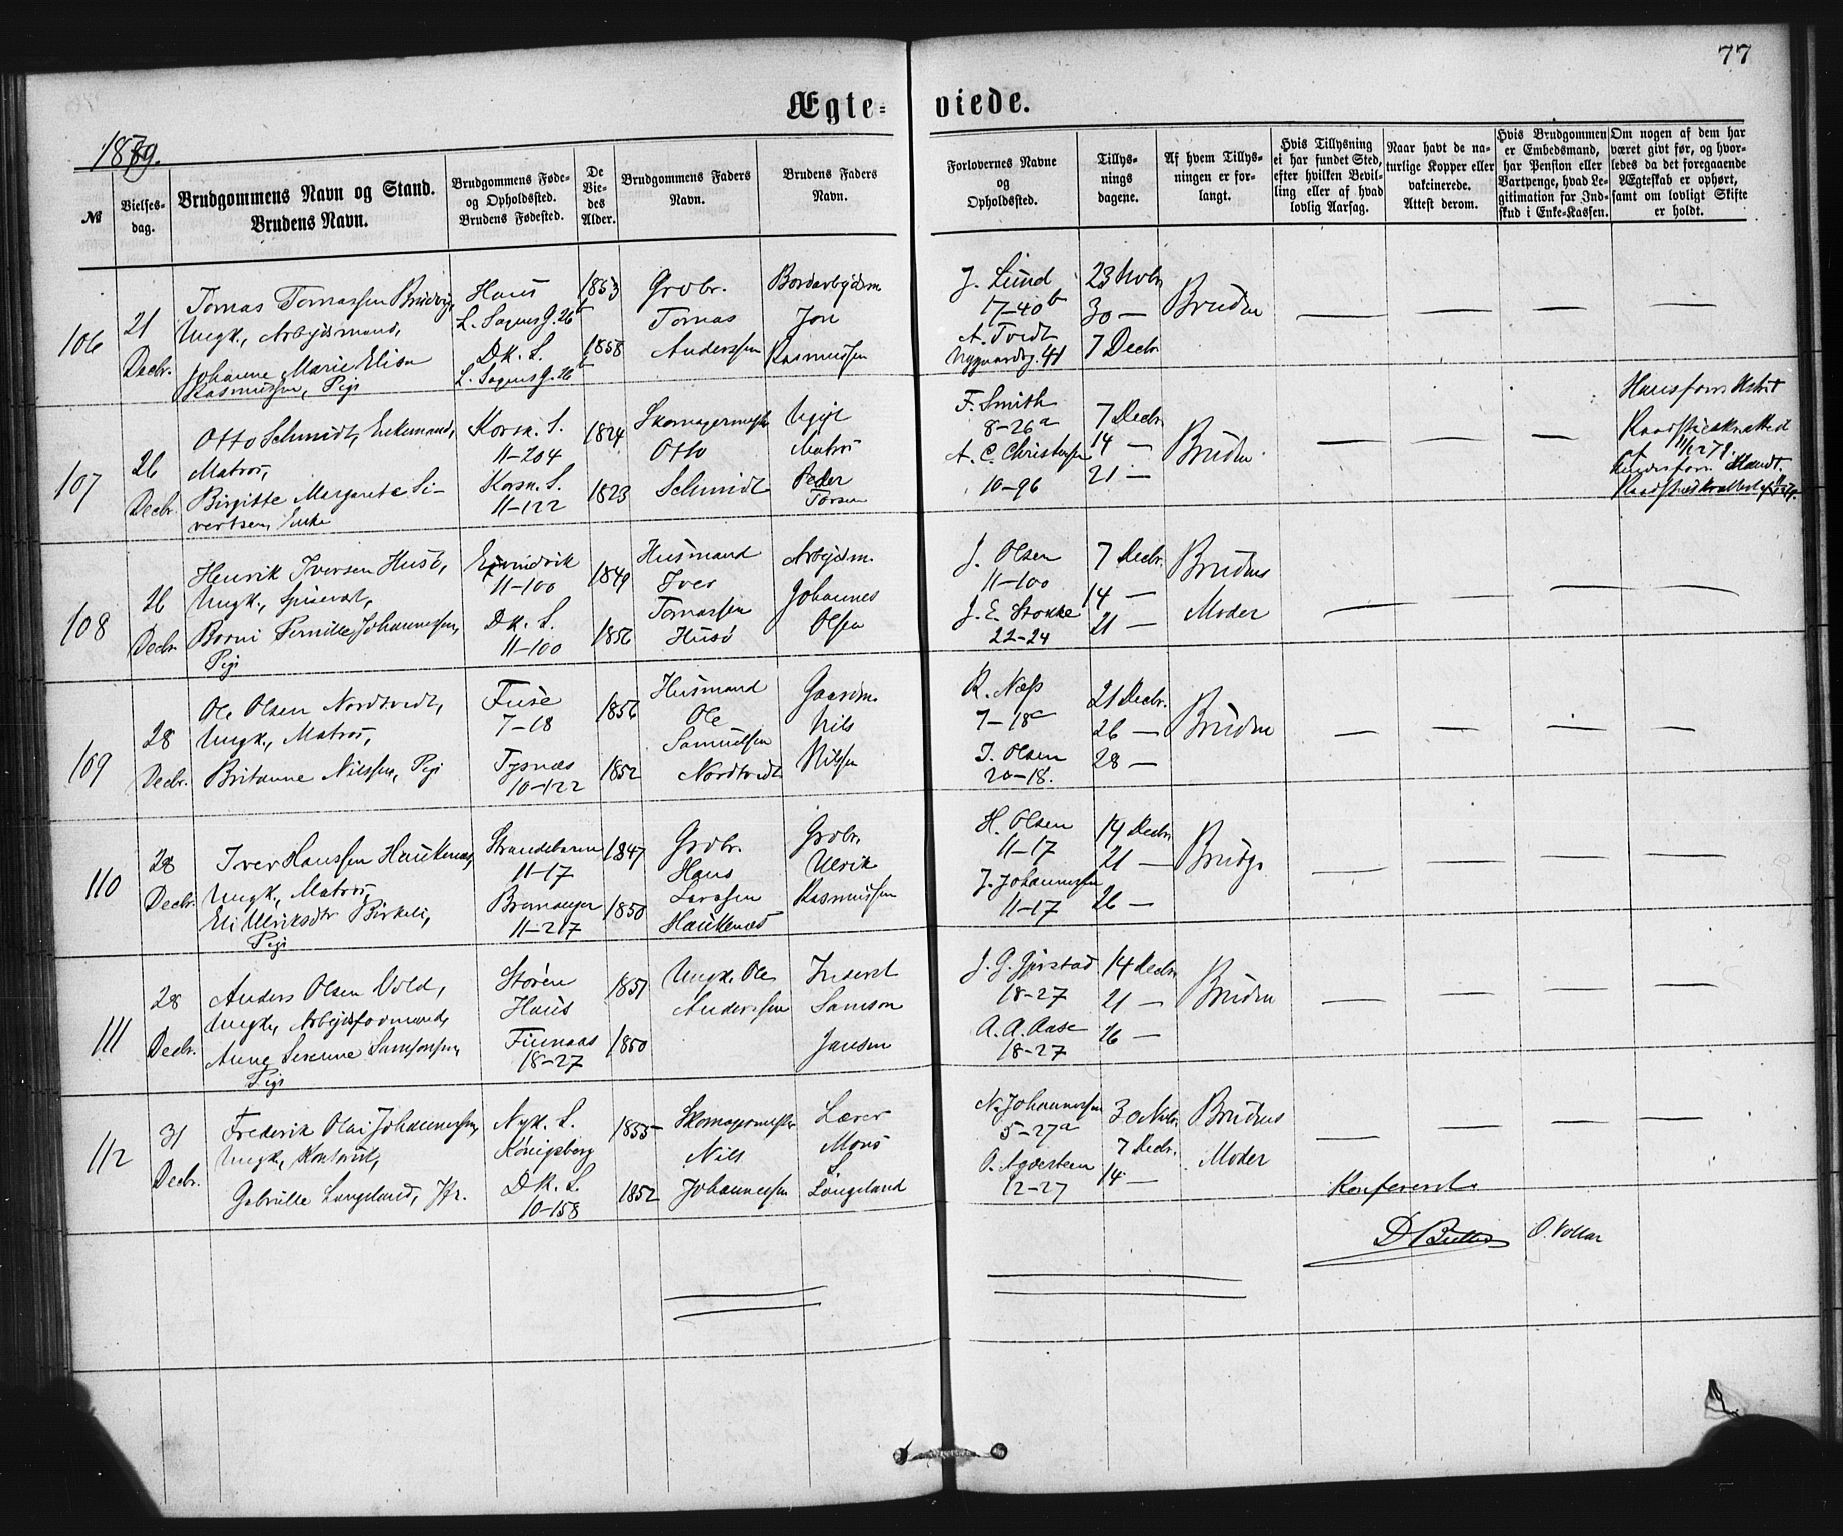 77
Ægte=viede.
1879.
№
Vielses-
dag.
Brudgommens Navn og Stand.
Brudens Navn.
Brudgommens Føde-
og Opholdsted.
Brudens Fødested.
De
Vie-
des
Alder.
Brudgommens Faders
Navn.
Brudens Faders
Navn.
Forlovernes Navne
og
Opholdsted.
Tillys-
nings
dagene.
Af hvem Tillys-
ningen er for-
langt.
Hvis Tillysning
ei har fundet Sted,
efter hvilken Bevil-
ling eller af hvad
lovlig Aarsag.
Naar havt de na-
turlige Kopper eller
vakcinerede.
Attest derom.
Hvis Brudgommen
er Embedsmand,
har Pension eller
Vartpenge, hvad Le-
gitimation for Ind-
skud i Enke-Kassen.
Om nogen af dem har
været givt før, og hvor-
ledes da det foregaaende
Ægteskab er ophørt,
samt om lovligt Skifte
er holdt.
106
21
Decbr.
Tomas Tomassen
Ungk., Arbejdsmand,
Johanne Marie Elisa
Rasmussen, Pige
Haus
L. SagensG. 26 b
DK. S.
L. SagensG. 26 b
1853
1858
Grdbr.
Tomas
Anderssen
Bordarbejdsm.
Jon
Rasmussen
J. Lund
17-40 b
A. Tvedt
Nygaardsg. 41
23 Novbr
30 —
7 Decbr
Bruden
— — — —
107
26
Decbr.
Otto Schmidt, Enkemand,
Matros,
Birgitte Margarete Si-
vertsen, Enke
Korsk. S.
11-204
Korsk. S.
11-122
1824
1823
Skomagermester
Otto
Schmidt
Matros
Peder
F. Smith
8-26 a
A. C. Christensen
10-96
7 Decbr
14 —
21 —
Bruden
— — —
108
26
Decbr.
Henrik Iversen Husø,
Ungk.,
Pernille Johannessen,
Pige
Evindvik
11-100
DK. S.
11-100
1849
1856
Husmand
Iver
Tomassen
Husø
Arbejdsm.
Johannes
Olsen
J. Olsen
11-100
J. E. Stokke
22-24
7 Decbr.
14 —
21 —
Brudens
Moder
— — — —
109
28
Decbr.
Ole Olsen Nordtvedt,
Ungk., Matros,
Britanne Nilssen, Pige
Fuse
7-18
Tysnæs
10-122
1856
1852
Husmand
Ole
Samuelsen
Nordtvedt
Gaardm.
Nils
Nilsen
R. Næss
7-18 c
I. Olsen
20-18.
21 Decbr.
26 —
28 —
Bruden
— — — —
110
28
Decbr.
Iver Hanssen Haukenæs,
Ungk., Matros,
Eli Ulriksdtr Birkeli,
Pige
Strandebarm
11-17
Bremanger
11-217
1847
1850
Grdbr.
Hans
Larssen
Haukenæs
Grdbr.
Ulrik
Rasmussen
H. Olsen
11-17
J. Johannessen
11-17
14 Decbr
21 —
26 —
Brudg.
— — — —
111
28
Decbr.
Anders Olsen Vold,
Ungk., Arbejdsformand,
Anne Serine Samsonsen,
Pige
Støren
Haus
Finnaas
18-27
1851
1850
Ungk. Ole
Anderssen
Inderst
Samson
Jansen
J. G. Gjerstad
18-27
A. A. Aase
18-27
14 Decbr
21 —
26 —
Bruden
— — — —
112
31
Decbr.
Frederik Olai Johannessen,
Ungk., Kontorist,
Gabrielle Langeland, Jfr.
Nyk. S.
Königsberg
DK. S.
10-158
1855
1852
Skomagermester
Nils
Johannessen
Lærer
Mons
L.
Langeland
N. Johannessen
5-27 a
O. Agdesteen
12-27
30 Novbr.
7 Decbr.
14 —
Brudens
Moder
— — — —
Konfereret.
O. Vollar